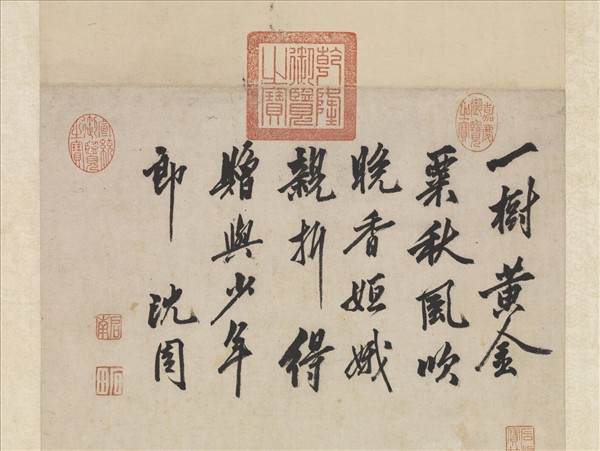 嘉慶御覽之寶
乾隆御覽之寶
一樹黃金
粟秋風吹
晚香姮娥
親折得
贈與少年
郎 沈周
宣統御覽之寶
启南
石田